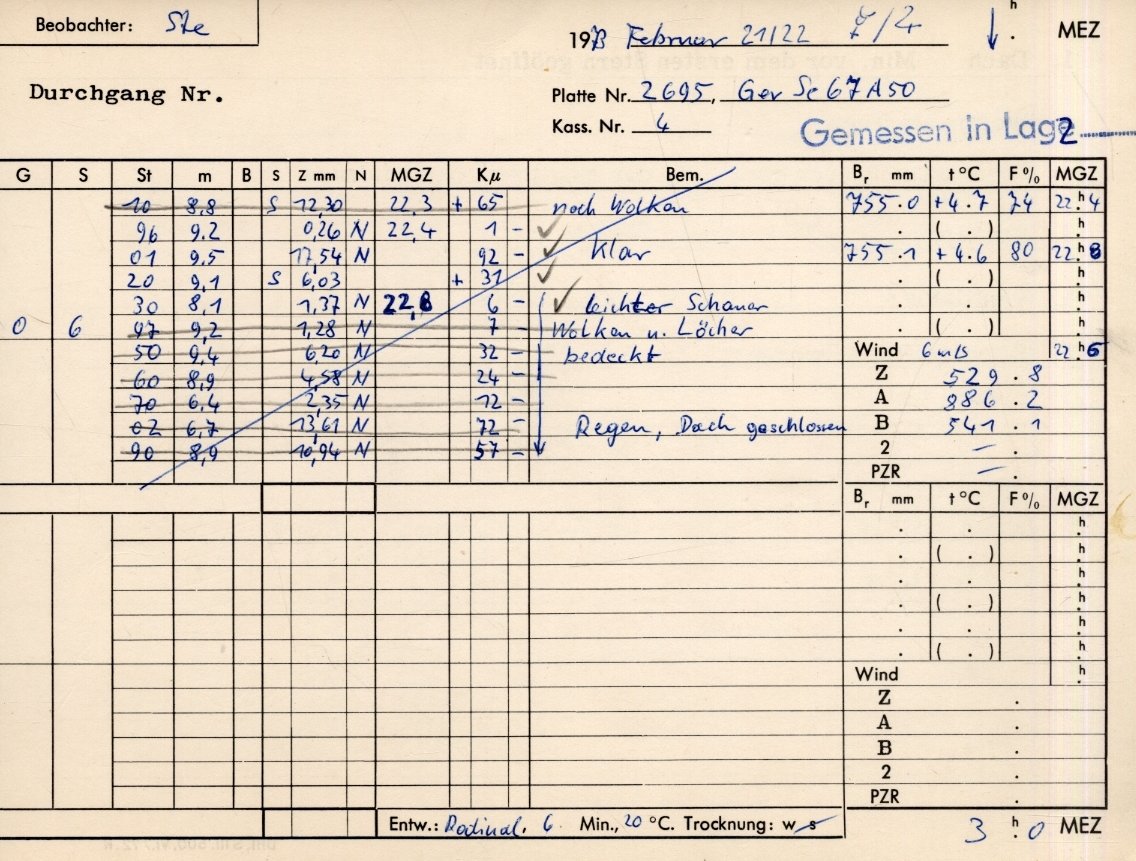 Beobachter: Ste
1973 Februar 21/22 7/4 h . MEZ
Durchgang Nr.
Platte Nr. 2695, Gev Sc 67 A 50
Kass. Nr. 4
Gemessen in Lage 2
G S St m B S Z mm N MGZ Kμ Bem. Br mm t °C F % MGZ
10 8,8 S 12,30 22,3 + 65 noch Wolken 755.0 +4.7 74 22h4
96 9.2 0,26 N 22,4 1 - ✓ ( . ) h
01 9.5 17,54 N 92 - Klar 755.1 +4.6 80 22h8
20 9,1 S 6,03 + 31 ✓ ( . ) h
30 8,1 1,37 N 22,8 6 - ✓ leichter Schauer . . h
0 6 97 9,2 1,28 N 7 - Wolken u. Löcher . ( . ) h
50 9,4 6,20 N 32 - bedeckt Wind 6 m/s 22h6
60 8,9 4,58 N 24 - Z 529.8
70 6,4 2,35 N 12 - A 886.2
02 6,7 13,61 N 72 - Regen, Dach geschlossen B 541.1
90 8,9 10,94 N 57 - 2 – .
PZR – .
Br mm t °C F % MGZ
. . h
. ( . ) h
. . h
. ( . ) h
. . h
. ( . ) h
Wind h
Z .
A .
B .
2 .
PZR .
Entw.: Rodinal, 6 Min., 20 °C. Trocknung: w s 3 h 0 MEZ